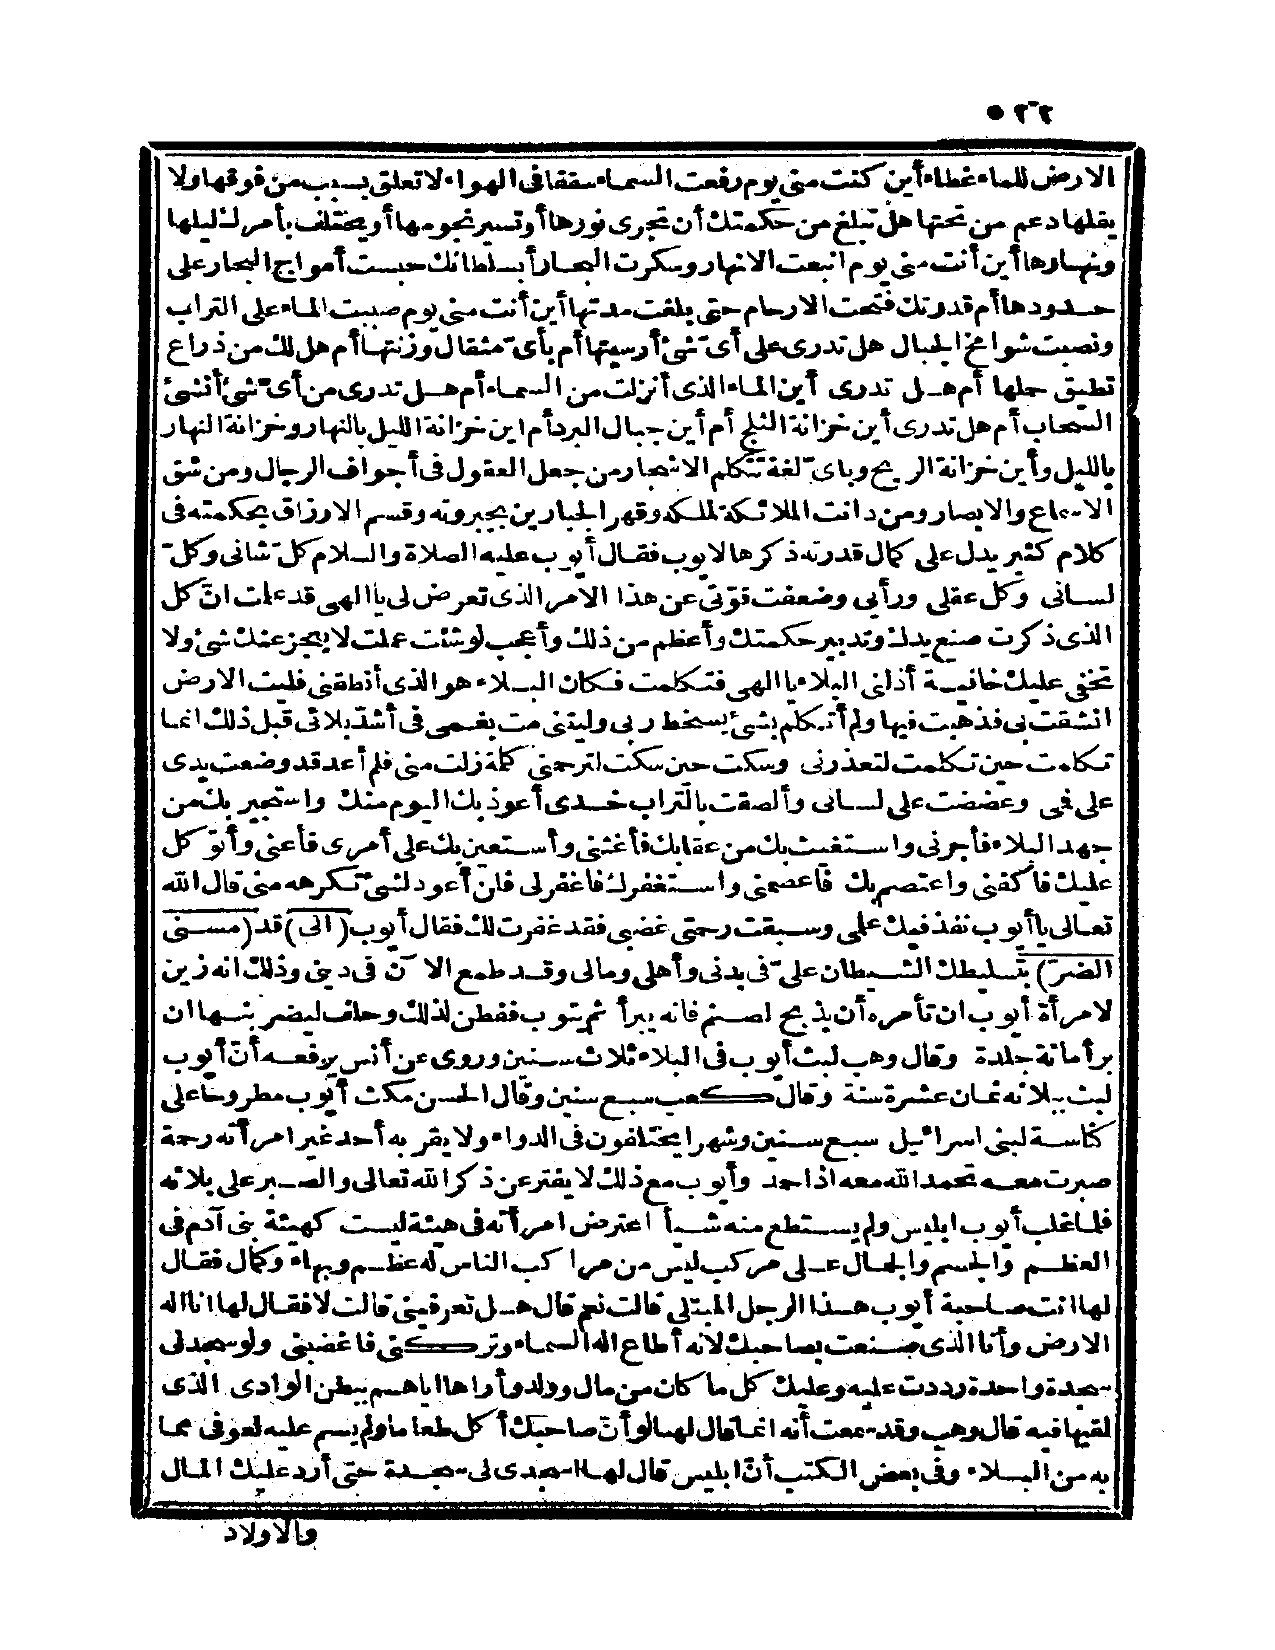 ٥٢٢
الارض للماء غطاء أين كنت منى يوم رفعت السماء سقفا فى الهواء لا تعلق بسبب من فوقها ولا
يقلها دعم من تحتها هل تبلغ من حكمتك أن تجرى نورها أو تسير نجومها أو يختلف بأمرك ليلها
ونهارها أين أنت منى يوم انبعت الانهار وسكرت البحار أبسلطانك حبست أمواج البحار على
حدودها أم قدرتك فتحت الارحام حتى بلغت مدتها أين أنت منى يوم صببت الماء على التراب
ونصبت شوامخ الجبال هل تدرى على أىّ شئ أرسيتها أم بأىّ مثقال وزنتها أم هل لك من ذراع
تطيق حملها أم هل تدرى أين الماء الذى أنزلت من السماء أم هل تدرى من أىّ شئ أنشئ
السحاب أم هل تدرى أين خزانة الثلج أم أين جبال البرد أم اين خزانة الليل بالنهار وخزانة النهار
بالليل وأين خزانة الريح وباىّ لغة تتكلم الاشجار من جعل العقول فى أجواف الرجال ومن شق
الاسماع والابصار ومن دانت الملائكة لملكه وقهر الجبارين بجبروته وقسم الارزاق بحكمته فى
كلام كثير يدل على كمال قدرته ذكرها لايوب فقال أيوب عليه الصلاة والسلام كلّ شانى وكلّ
لسانى وكل عقلى ورأيى وضعفت قوّتى عن هذا الامر الذى تعرض لى يا الهى قد علمت انّ كل
الذى ذكرت صنع يدك وتدبير حكمتك وأعظم من ذلك وأعجب لو شئت عملت لا يعجز عنك شئ ولا
تخفى عليك خافية أذلنى البلاء يا الهى فتكلمت فكان البلاء هو الذى أنطقنى فليت الارض
انشقت بى فذهبت فيها ولم أتكلم بشئ يسخط ربى وليتنى مت بغمى فى أشدّ بلائى قبل ذلك انما
تكلمت حين تكلمت لتعذرنى وسكت حين سكت لترحمنى كلمة زلت منى فلم أعد قد وضعت يدى
على فمى وعضضت على لسانى وألصقت بالتراب خدى أعوذ بك اليوم منك واستجير بك من
جهد البلاء فأجرنى واستغيث بك من عقابك فأغثنى وأستعين بك على أمرى فأعنى وأتوكل
عليك فاكفنى واعتصم بك فاعصمنى واستغفرك فاغفر لى فلن أعود لشئ تكرهه منى قال الله
تعالى يا أيوب نفذ فيك علمى وسبقت رحمتى غضبى فقد غفرت لك فقال أيوب (انى) قد (مسنى
الضرّ) بتسليطك الشيطان علىّ فى بدنى وأهلى ومالى وقد طمع الآن فى دينى وذلك انه زين
لامرأة أيوب ان تأمره أن يذبح لصنم فانه يبرأ ثم يتوب ففطن لذلك وحلف ليضربنها ان
برأ مائة جلدة وقال وهب لبث أيوب فى البلاء ثلاث سنين وروى عن أنس يرفعه أنّ أيوب
لبث ببلائه ثمان عشرة سنة وقال كعب سبع سنين وقال الحسن مكث أيوب مطروحا على
كناسة لبنى اسرائيل سبع سنين وشهرا يختلفون فى الدواء ولا يقربه أحد غير امرأته رحمة
صبرت معه تحمد الله معه اذا حمد وأيوب مع ذلك لا يفتر عن ذكر الله تعالى والصبر على بلائه
فلما غلب أيوب ابليس ولم يستطع منه شيأ اعترض امرأته فى هيئة ليست كهيئة بنى آدم فى
العظم والجسم والجمال على مركب ليس من مراكب الناس له عظم وبهاء وكمال فقال
لها انت صاحبة أيوب هذا الرجل المبتلى قالت نعم قال هل تعرفينى قالت لا فقال لها انا اله
الارض وأنا الذى صنعت بصاحبك لانه أطاع اله السماء وتركنى فاغضبنى ولو سجد لى
سجدة واحدة رددت عليه وعليك كل ما كان من مال وولد وأراها اياهم ببطن الوادى الذى
لقيها فيه قال وهب وقد سمعت أنه انما قال لها لو أنّ صاحبك أكل طعاما ولم يسم عليه لعوفى مما
به من البلاء وفى بعض الكتب أنّ ابليس قال لها اسجدى لى سجدة حتى أرد عليك المال
والاولاد